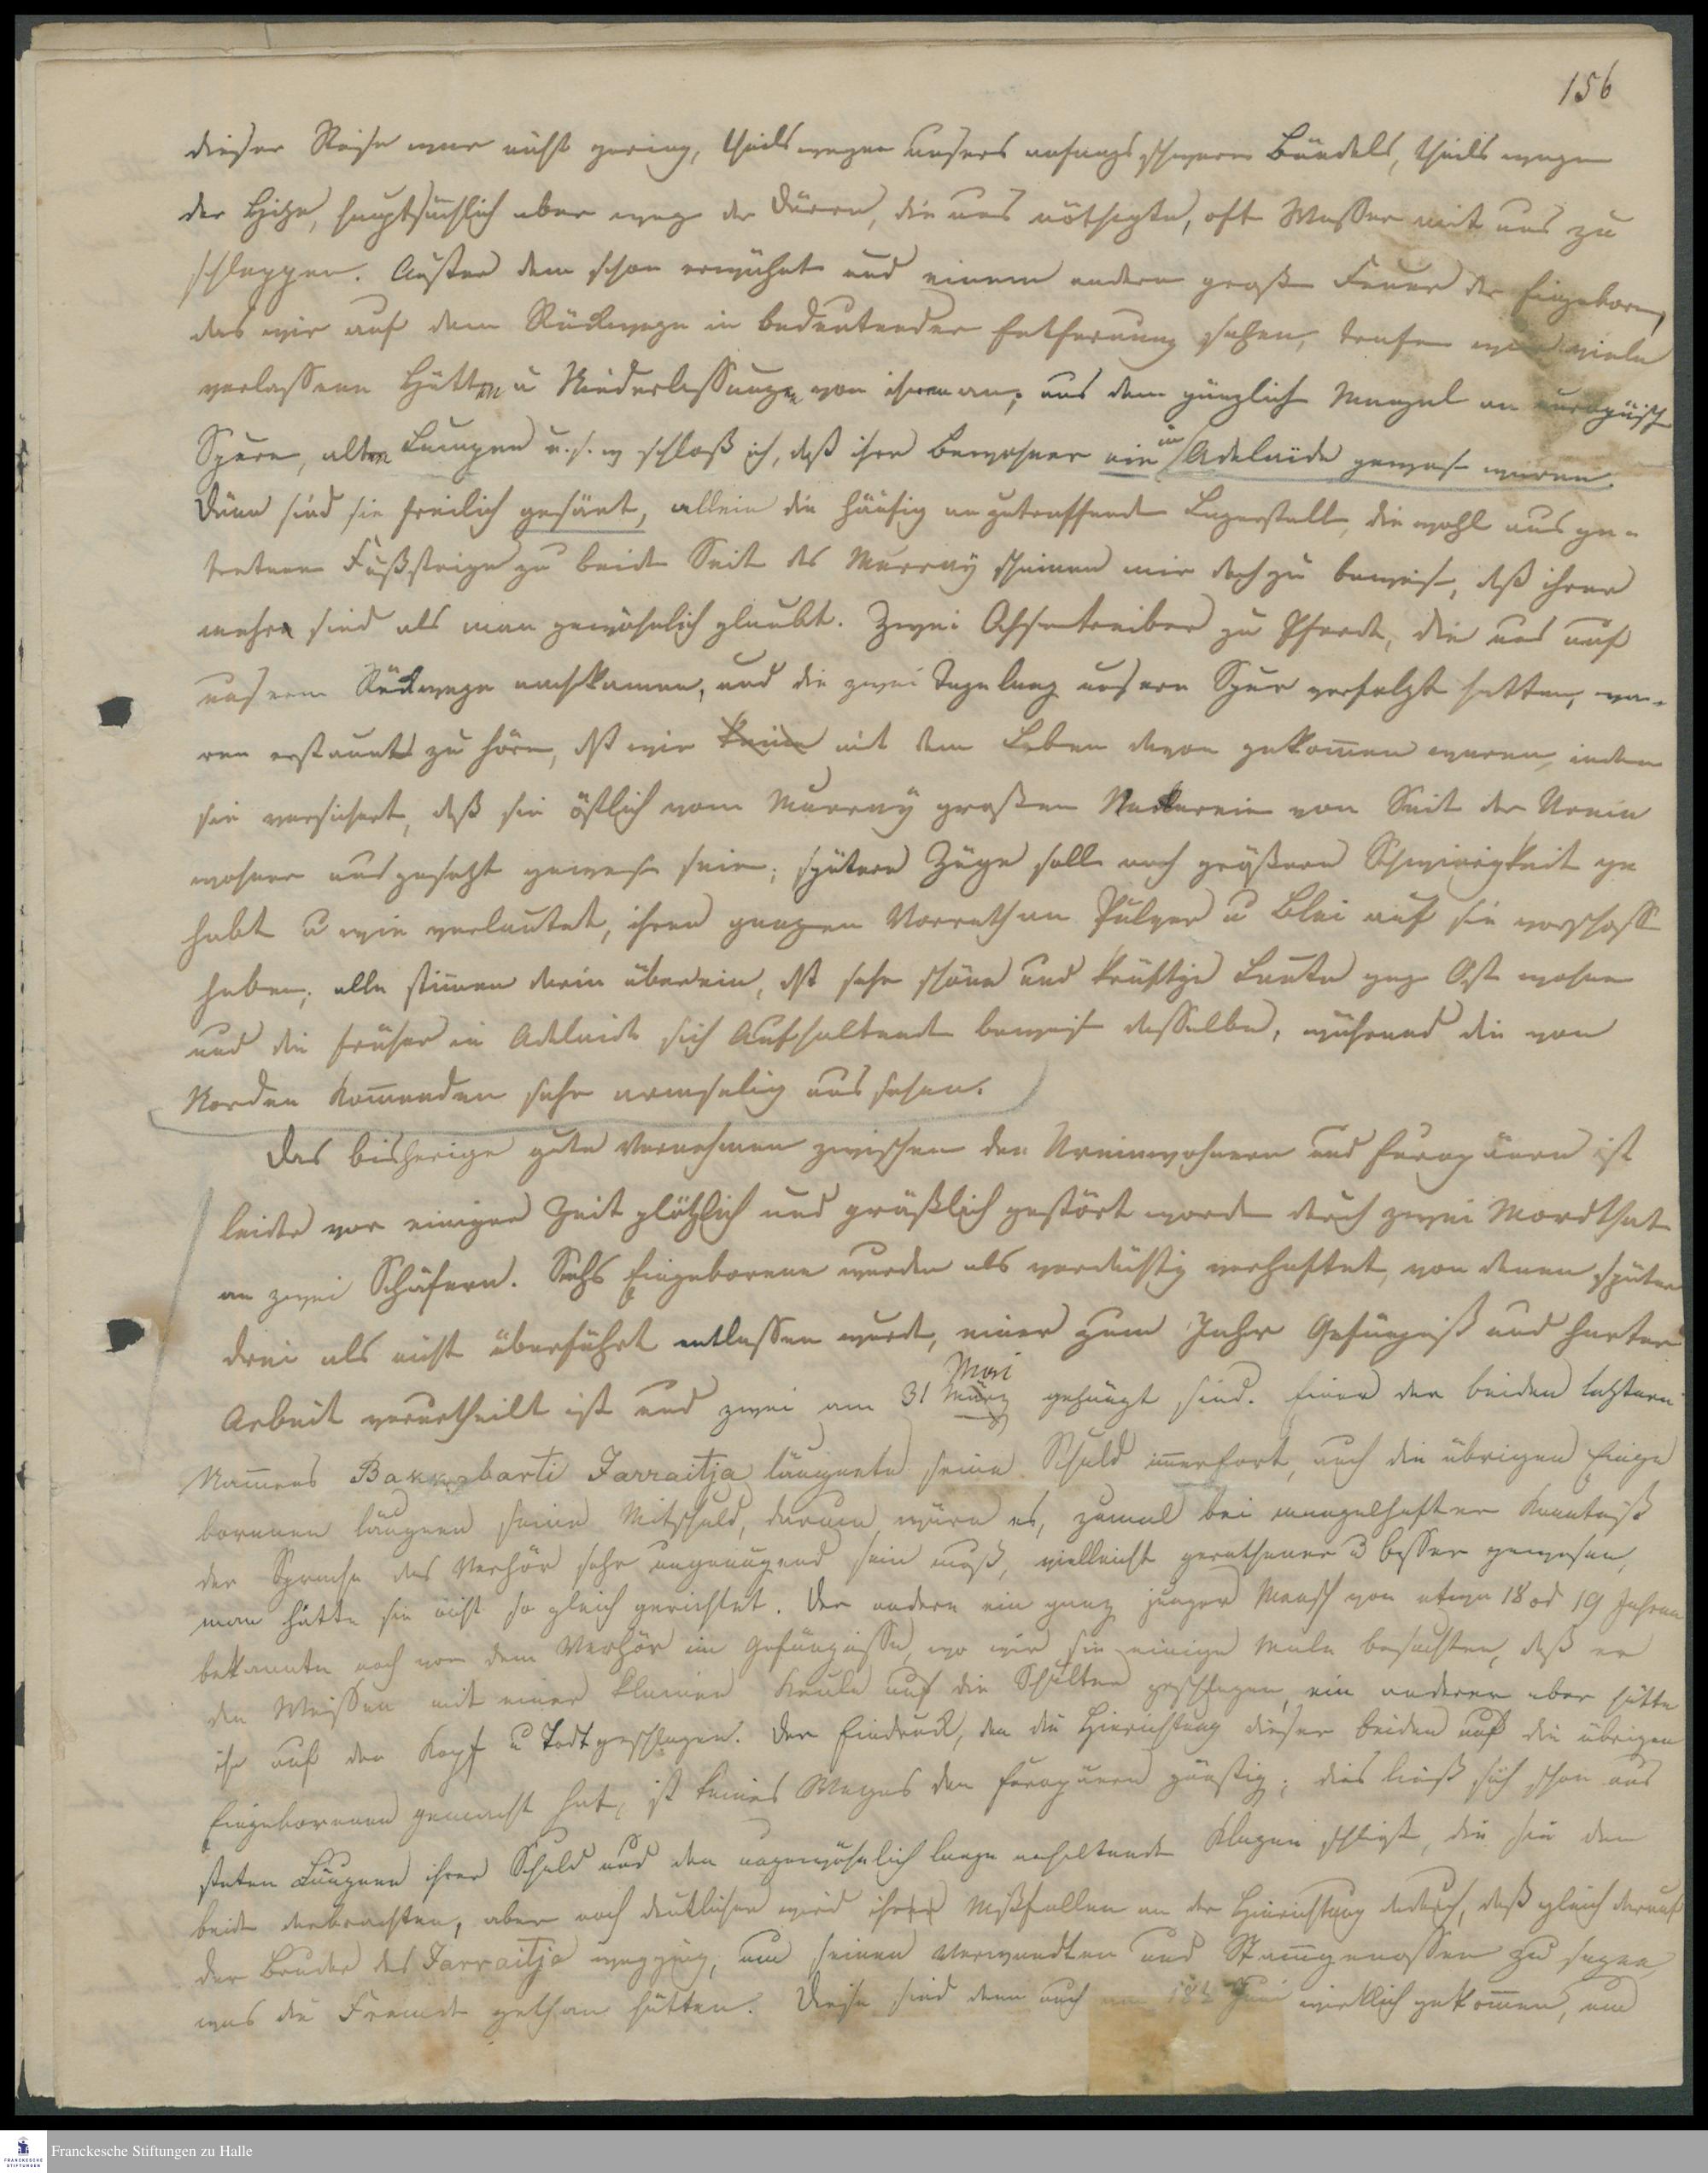 156
dieser Reise war nicht gering, theils wegen unsers anfangs schweren Bündels, theils wegen
der Hitze, hauptsächlich aber weg. der Dürre, die uns nöthigte, oft Wasser mit uns zu
schleppen. Außer dem schon erwähnt und einem andern großen Feuer der Eingebornen,
das wir auf dem Rückwege in bedeutender Entfernung sahen, trafen wir viele
verlassene Hütten u Niederlassungen von ihnen an; aus dem gänzlich Mangel an europäisch
Spuren, alten Lumpen u.s.w schloß ich, daß ihre Bewohner nie in Adelaide gewes. waren.
Dünn sind sie freilich gesäet, allein die häufig anzutreffende Lagerstell, die wohl ausge-
tretenen Fußsteige zu beide Seit des Murray scheinen mir doch zu beweis., daß ihrer
mehr sind als man gewöhnlich glaubt. Zwei Ochsentreiber zu Pferde, die uns auf
unserem Rückwege nachkamen, und die zwei Tage lang unsere Spur verfolgt hatten, wa-
ren erstaunt zu hören, daß wir mit dem Leben davon gekom̄en waren, indem
sie versichert, daß sie östlich vom Murray großen Neckereien von Seit der Urein
wohner ausgesetzt gewes. seien; spätere Züge soll. noch größere Schwierigkeit ge
habt u wie verlautet, ihren ganzen Vorrath an Pulver u Blei auf sie verschoss
haben; alle stim̄en darin überein, daß sehr schöne und kräftige Leute geg. Ost wohnen
und die früher in Adelaide sich Aufhaltende beweis. dasselbe, während die von
Norden kom̄enden sehr armselig aussehen.
Das bisherige gute Vernehmen zwischen den Ureinwohnern und Europäern ist
leider vor einiger Zeit plötzlich und gräßlich gestört word. durch zwei Mordthat
an zwei Schäfern. Sechs Eingeborene wurden als verdächtig verhaftet, von denen später
drei als nicht überführt entlassen wurde, einer zum Jahr Gefängniß und harter
Arbeit verurtheilt ist und zwei am 31 März Mai gehängt sind. Einer der beiden letztern
Nam̄ens Bakkabarti Jarraitja läugnete seine Schuld im̄erfort, auch die übrigen Einge
borenen läugnen seine Mitschuld, darum wäre es, zumal bei mangelhafter Kenntniß
der Sprache das Verhör sehr ungenügend sein muß, vielleicht gerathener u besser gewesen,
man hätte sie nicht so gleich gerichtet. Der andere ein ganz junger Mensch von etwa 18 od 19 Jahren
bekannte noch vor dem Verhör im Gefängnisse, wo wir sie einige Male besuchten, daß er
den Weissen mit einer kleinen Keule auf die Schulter geschlagen, ein anderer aber hätte
ihn auf den Kopf u Todt geschlagen. Der Eindruck, den die Hinrichtung dieser beiden auf die übrigen
Eingeborenen gemacht hat, ist keines Weges den Europäern günstig; dies ließ sich schon aus
steten Läugnen ihrer Schuld und den ungewöhnlich lange anhaltende Klagen schließt, die sie den
beide darbrachten, aber noch deutlicher wird ihr Mißfallen an der Hinrichtung dadurch, daß gleich darauf
der Bruder des Jarraitja wegging, um seinen Verwandten und Stam̄genossen zu sagen,
was die Fremde gethan hätten. Diese sind denn auch am Juni wirklich gekom̄en, um
Franckesche Stiftungen zu Halle